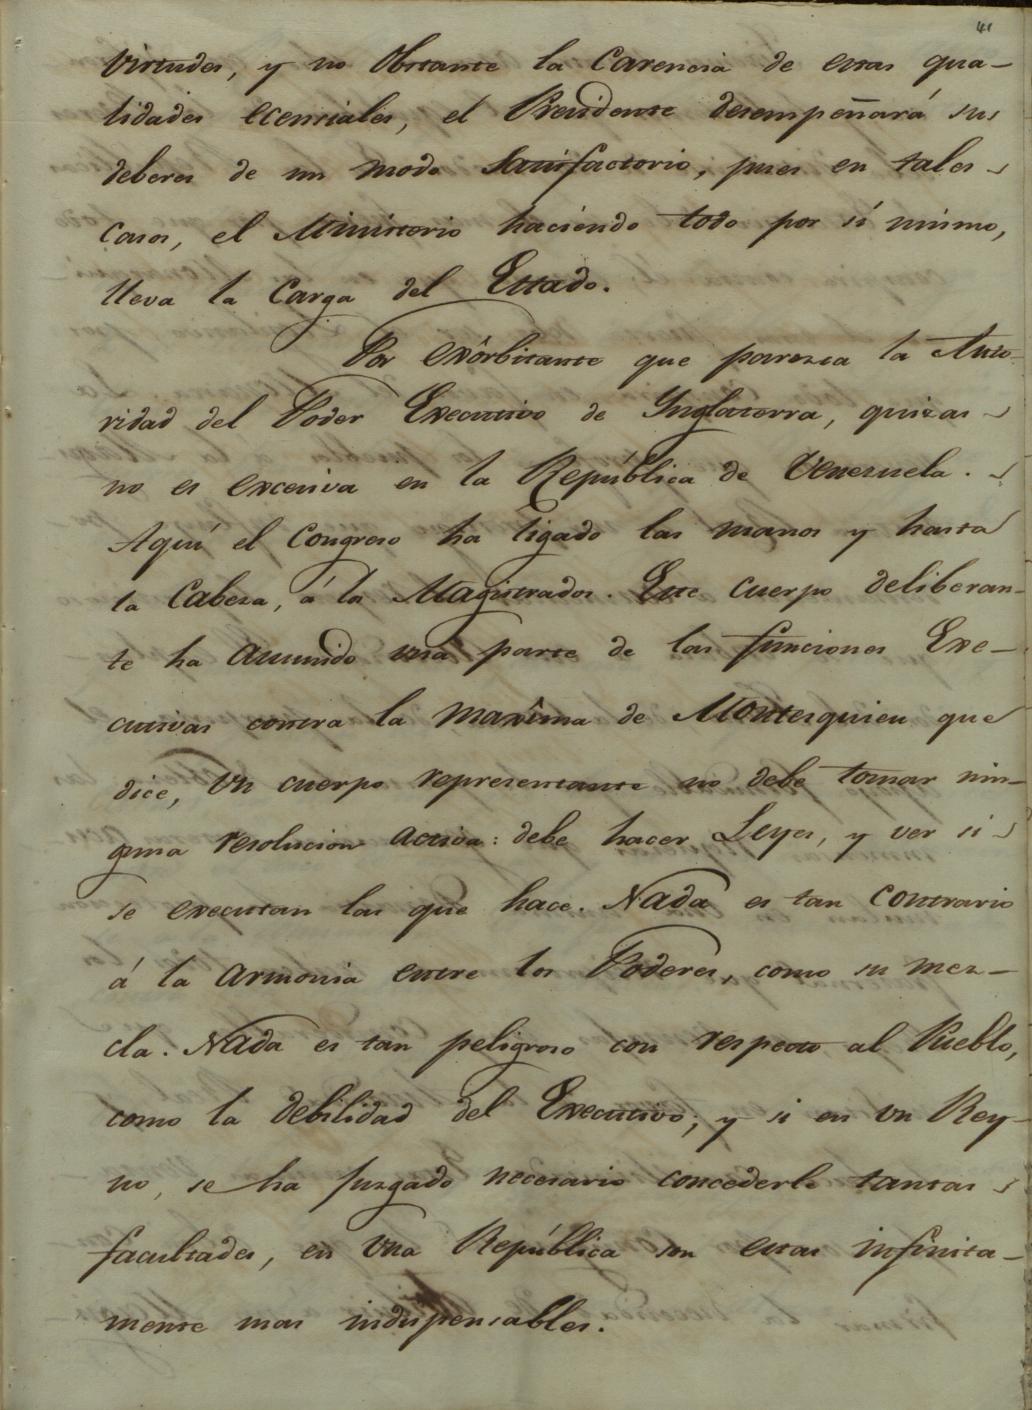 41
virtudes, y no Obstante la Carencia de estas qua-
lidades ecenciales, el Presidente desempeñará sus
deberes de un modo Satisfactorio; pues en tales
casos, el Ministerio haciendo todo por sí mismo,
lleva la Carga del Estado.
Por exôrbitante que parezca la Auto-
ridad del Poder Executivo de Inglaterra, quizas
no es excesiva en la República de Venezuela.
Aquí el Congreso ha ligado las manos y hasta
la Cabeza, á los Magistrados. Este cuerpo deliberan-
te ha asumido una parte de las funciones Exe-
cutivas contra la maxîma de Montesquieu que
dice, Un cuerpo representante no debe tomar nin-
guna resolucion activa: debe hacer Leyes, y ver si
se executan las que hace. Nada es tan contrario
á la armonia entre los Poderes, como su mez-
cla. Nada es tan peligroso con respecto al Pueblo,
como la debilidad del Executivo; y si en un Rey-
no, se ha juzgado necesario concederle tantas
facultades, en una República son estas infinita-
mente mas indispensables.